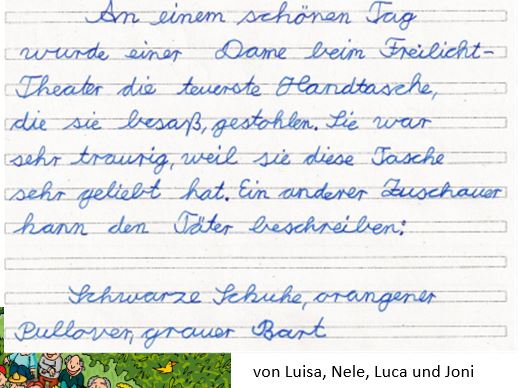 An einem schönen Tag
wurde einer Dame beim Freilicht-
Theater die teuerste Handtasche,
die sie besaß, gestohlen. Sie war
sehr traurig, weil sie diese Tasche
sehr geliebt hat. Ein anderer Zuschauer
kann den Täter beschreiben:
Schwarze Schuhe, orangener
Pullover, grauer Bart
von Luisa, Nele, Luca und Joni